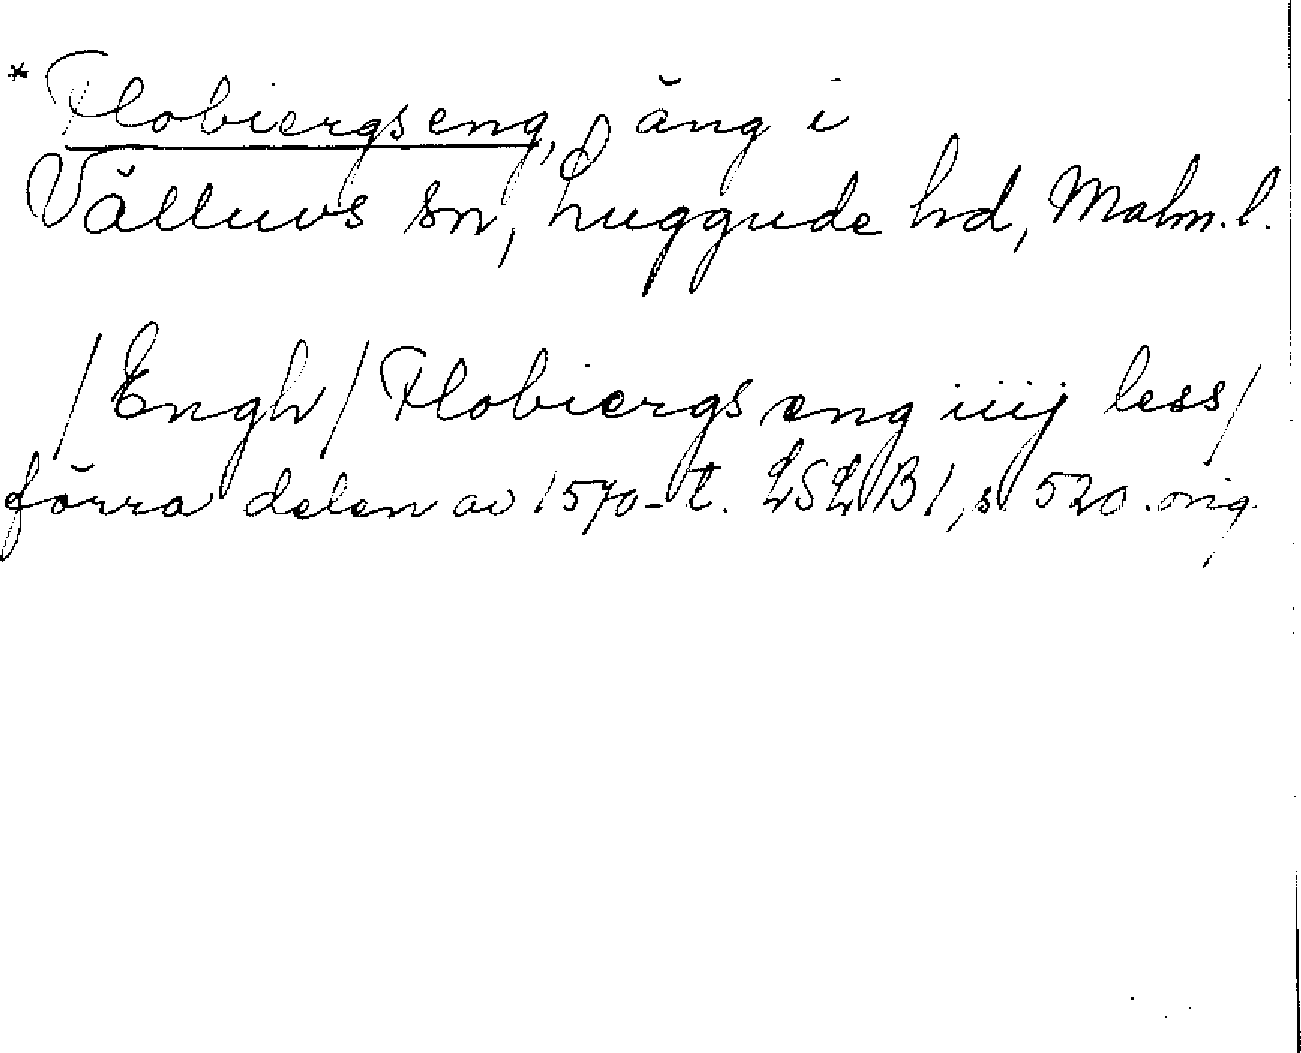 *Flobiergs eng, äng i
Välluvs sn, Luggude hd, Malm. l.
/Engh/ Flobiergs eng iiij less/
förra delen av 1570-t. LSLB 1, s 520. orig.